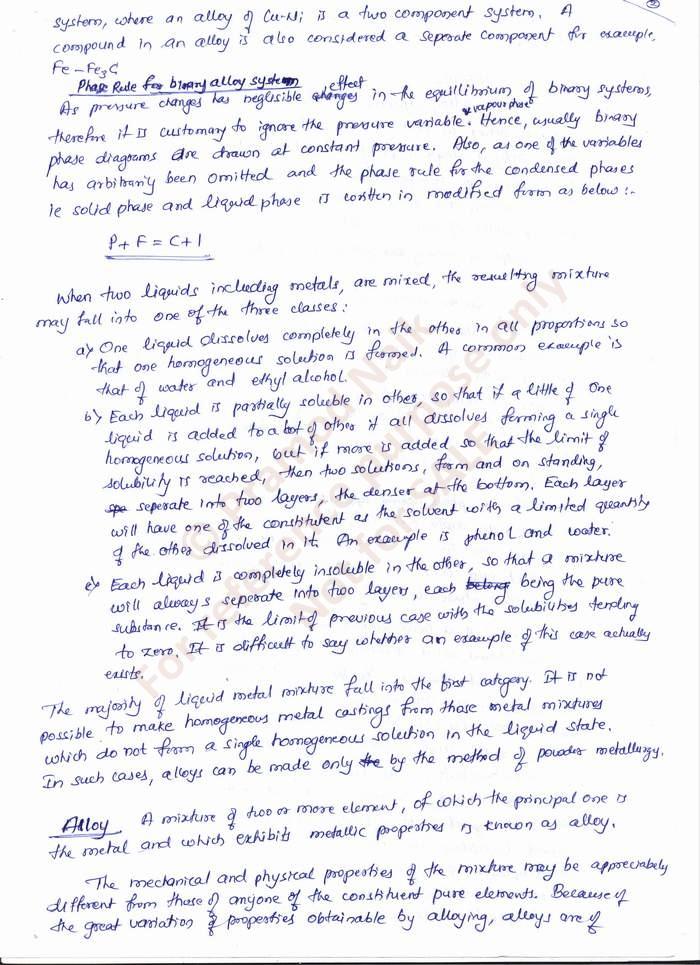 2
system, where an alloy of Cu-Ni is a two component system. A
compound in an alloy is also considered a seperate component for example,
Fe-Fe3C
Phase Rule for binary alloy system
As pressure changes has neglisible effect in the equillibrium of binary systems,
therefore it is customary to ignore the pressure variable & vapour phase. Hence, usually binary
phase diagrams are drawn at constant pressure. Also, as one of the variables
has arbitrarily been omitted and the phase rule for the condensed phases
ie solid phase and liquid phase is written in modified form as below:-
P+F=C+1
When two liquids including metals, are mixed, the resulting mixture
may fall into one of the three classes:
a) One liquid dissolves completely in the other in all proportions so
that one homogeneous solution is formed. A common example is
that of water and ethyl alcohol.
b) Each liquid is partially soluble in other, so that if a little of one
liquid is added to a lot of other it all dissolves forming a single
homogeneous solution, but if more is added so that the limit of
solubility is reached, then two solutions, form and on standing,
seperate into two layers, the denser at the bottom. Each layer
will have one of the constitutent as the solvent with a limited quantity
of the other dissolved in it. An example is phenol and water.
c) Each liquid is completely insoluble in the other, so that a mixture
will always seperate into two layers, each being the pure
substance. It is the limit of previous case with the solubilities tending
to zero. It is difficult to say whether an example of this case actually
exists.
The majority of liquid metal mixture fall into the first category. It is not
possible to make homogeneous metal castings from those metal mixtures
which do not form a single homogeneous solution in the liquid state.
In such cases, alloys can be made only by the method of powder metallurgy.
Alloy A mixture of two or more element, of which the principal one is
the metal and which exhibits metallic properties is known as alloy.
The mechanical and physical properties of the mixture may be appreciabely
different from those of anyone of the constituent pure elements. Because of
the great variation of properties obtainable by alloying, alloys are of
© Pramod Naik
For reference purpose only
Not for SALE